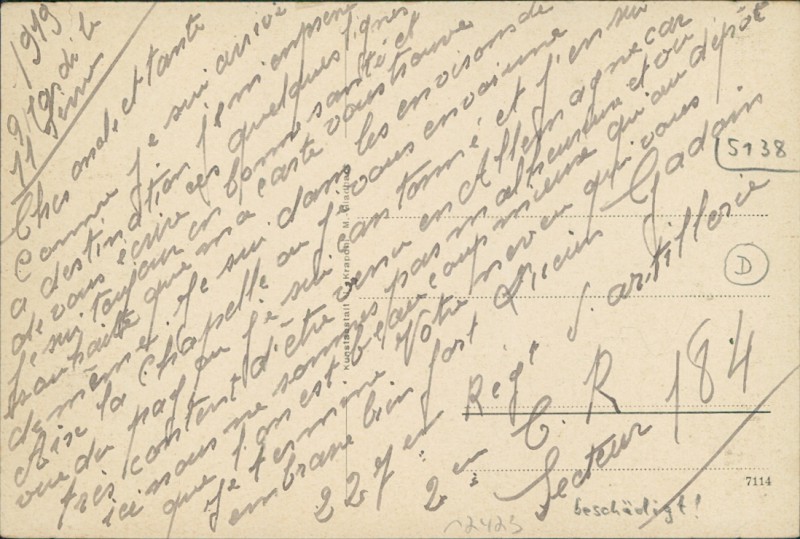 11 Ferrier 1919
Chers oncle et tante
Comme je sui arrivé
a destination je m'empresse
de vous écrire ces quelques lignes
Je sui toujour en bonne santé et
souhaite que ma carte vous trouve
de même. Je sui dans les environs de
Aix la Chapelle ou je vous envoi une
vue du pay ou je sui cantonné et j'en sui
très content d'être venu en Allemagne car
ici nous ne sommes pas malheureux et ou
que l'on est beaucoup mieux qu'au depôt
Je termine Votre neveu qui vous
embrase bien fort Lucien Gadoin
227 em Régt d'artillerie
2 em C. R
Secteur 184
5138
D
Kunstanstalt Krapohl M. Gladbach
7114
beschädigt!
12423